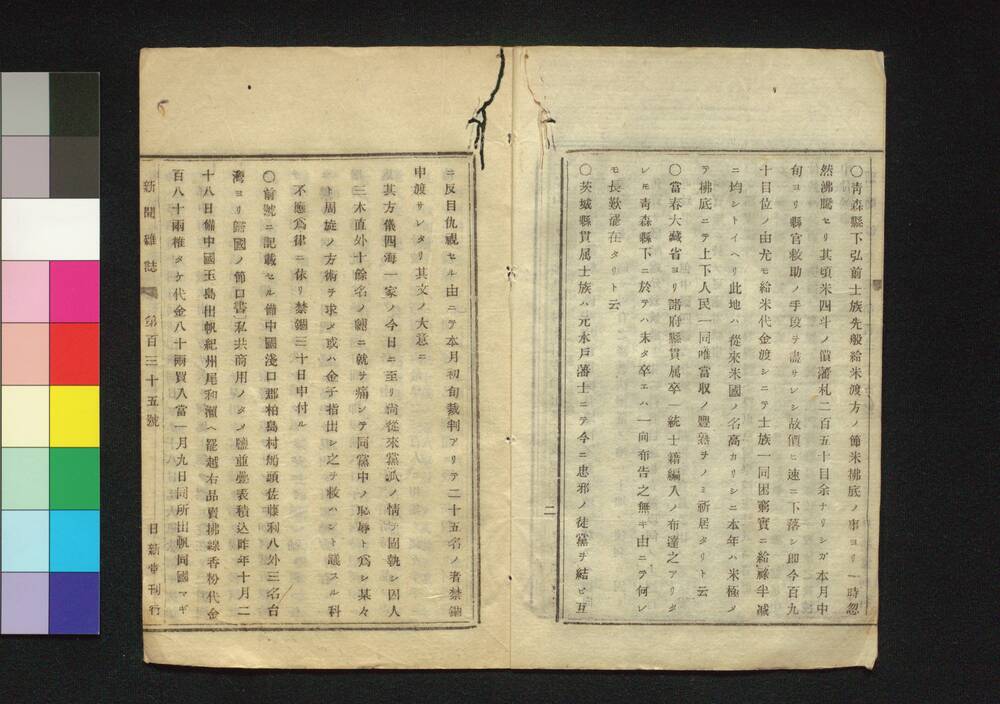 〇靑森縣下弘前士族先般給米渡方ノ節米拂底ノ事ヨリ一時忽
然沸騰セリ其頃米四斗ノ價藩札二百五十目余ナリシガ本月中
旬ヨリ縣官救助ノ手段ヲ盡サレシ故價ヒ速ニ下落シ即今百九
十目位ノ由尤モ給米代金渡シニテ士族一同困窮實ニ給祿半减
ニ均シトイヘリ此地ハ從來米國ノ名高カリシニ本年ハ米極メ
テ拂底ニテ上下人民一同唯當秋ノ豐熟ヲノミ祈居タリト云
〇當春大藏省ヨリ諸府縣貫属卒一統士籍編入ノ布達之アリタ
レモ靑森縣下ニ於テハ末タ卒エハ一向布告之無キ由ニテ何レ
モ長歎罷在タリト云
〇茨城縣貫属士族ハ元水戶藩士ニテ今ニ忠邪ノ徒黨ヲ結ヒ互
二
ニ反目仇視セル由ニテ本月初旬裁判アリテ二十五名ノ者禁錮
申渡サレタリ其文ノ大意ニ
其方儀四海一家ノ今日ニ至リ尙從來黨派ノ情ヲ固執シ囚人
三木直外十餘名ノ縛ニ就ヲ痛シテ同黨中ノ恥辱ト爲シ某々
ト周旋ノ方術ヲ求メ或ハ金子指出シ之ヲ救ハント議スル科
不應爲律ニ依リ禁錮三十日申付ル
〇前號ニ記載セル備中國淺口郡柏島村船頭佐藤利八外三名台
灣ヨリ歸國ノ節口書ニ私共商用ノタメ鹽並疊表積込昨年十月二
十八日備中國玉島出帆紀州尾和瀬ヘ罷越右品賣拂線香粉代金
百八十兩椎タケ代金八十兩買入當一月九日同所出帆同國マギ
新聞雜誌 第百三十五號 日新堂刊行